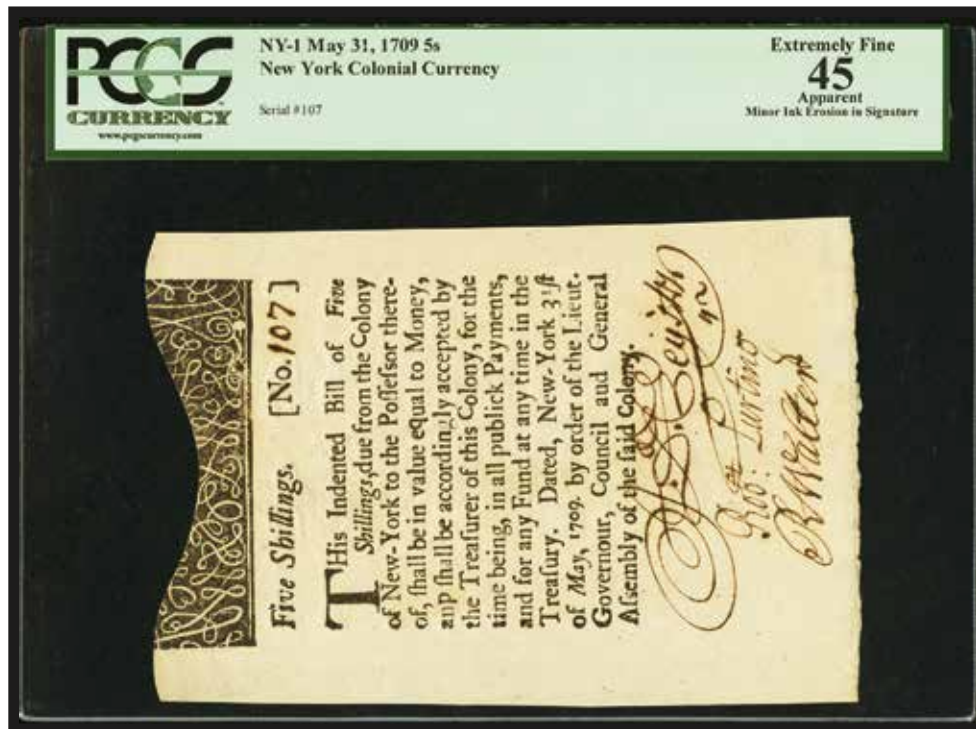 PCGS
CURRENCY
www.pcgscurrency.com
NY-1 May 31, 1709 5s
New York Colonial Currency
Serial #107
Extremely Fine
45
Apparent
Minor Ink Erosion in Signature
Five Shillings. [No. 107]
THis Indented Bill of Five
Shillings, due from the Colony
of New-York to the Poſſeſsor there-
of, ſhall be in value equal to Money,
anP ſhall be accordingly accepted by
the Treaſurer of this Colony, for the
time being, in all publick Payments,
and for any Fund at any time in the
Treaſury. Dated, New-York 31ſt
of May, 1709. by order of the Lieut.
Governour, Council and General
Aſsembly of the ſaid Colony.
Robt Lurting
R Walter